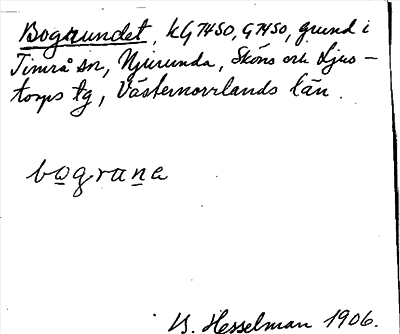 Bogrundet, kG 7450, G 7450, grund i
Timrå sn, Njurunda, Sköns och Ljus-
torps tg, Västernorrlands län.
bograna
B. Hesselman 1906.